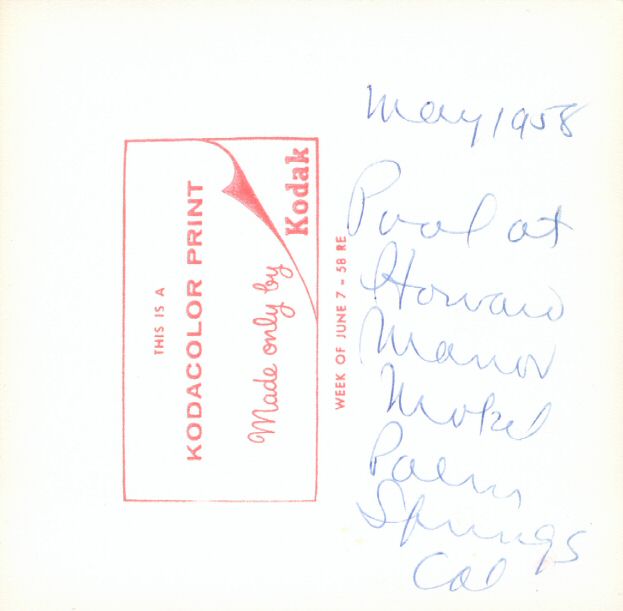 May 1958
Pool at
Howard
Manor
Motel
Palm
Springs
Cal
THIS IS A
KODACOLOR PRINT
Made only by
Kodak
WEEK OF JUNE 7 - 58 RE